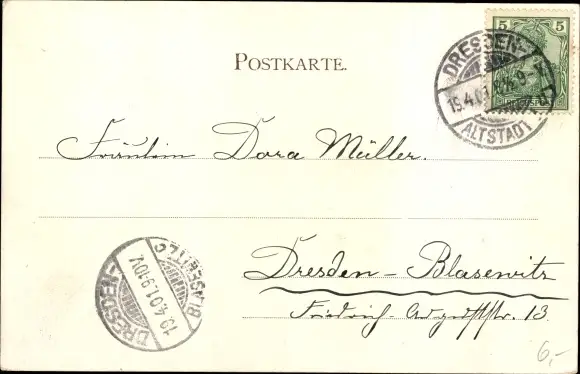 POSTKARTE.
5 5
REICHSPOST
DRESDEN-
19.4.01
8-9
ALTSTADT
Fräulein Dora Müller.
Dresden-Blasewitz
Friedrich-Auguststr. 13
DRESDEN-
19.4.01.9-10V.
BLASEWITZ
6,-